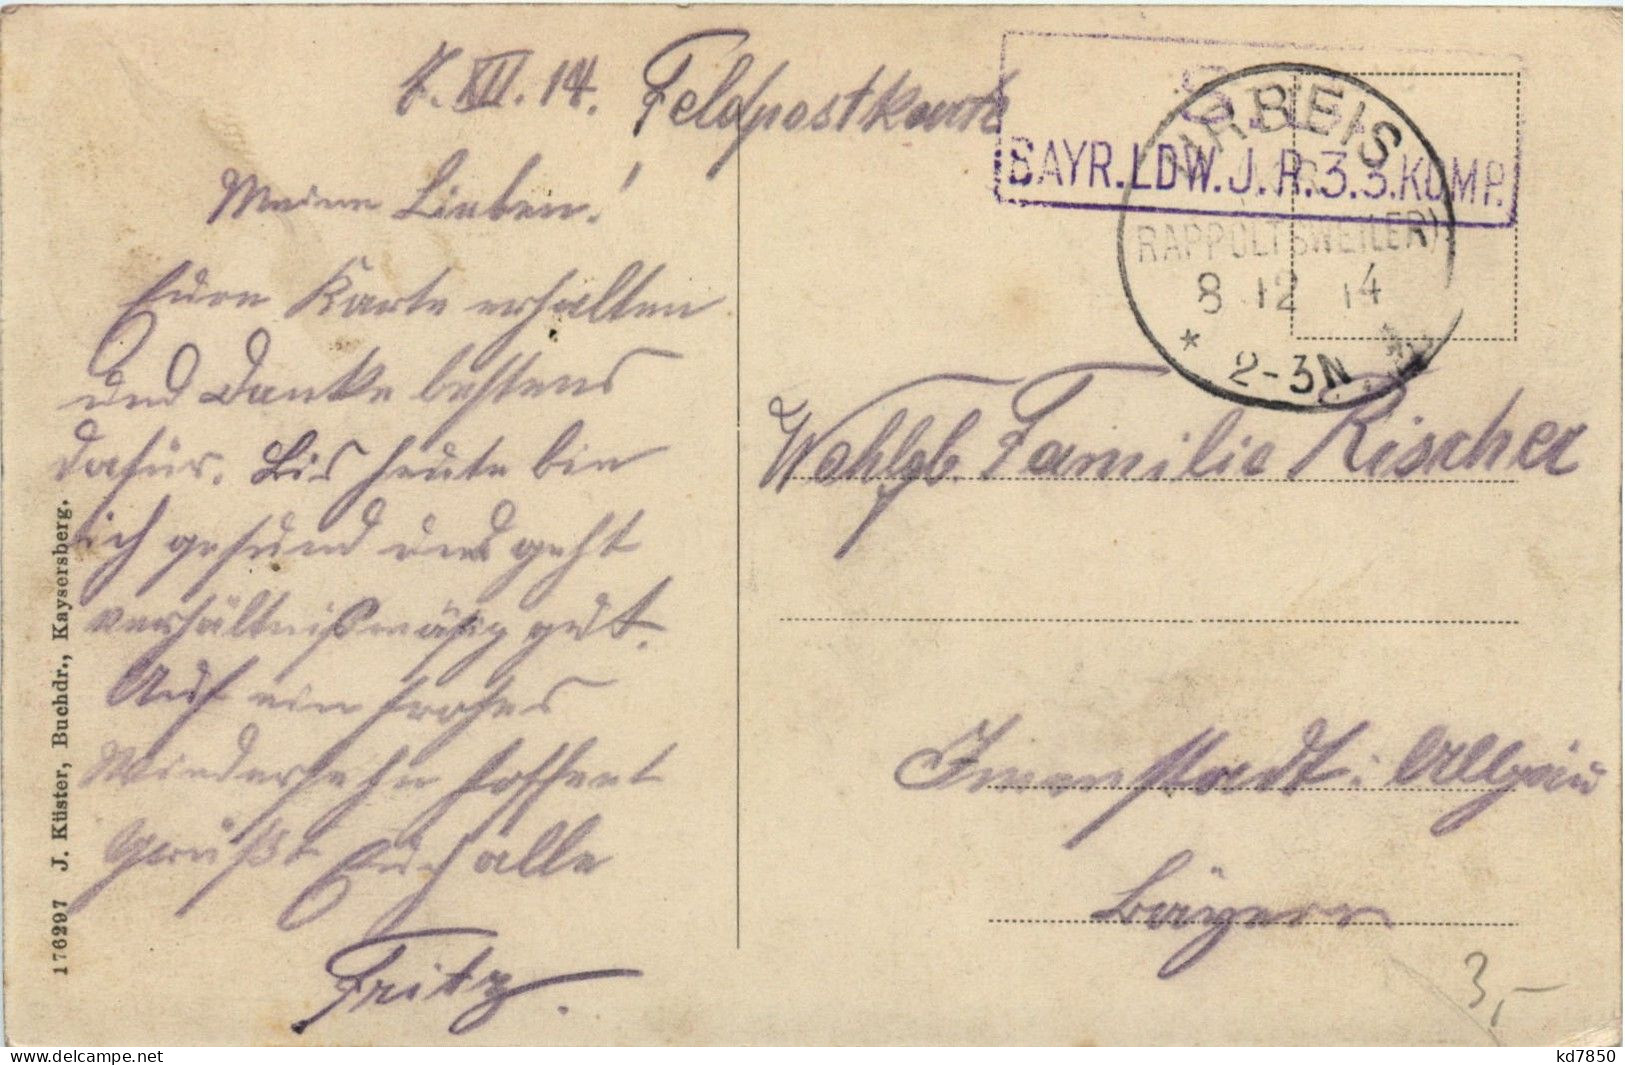 7. XII. 14. Feldpostkarte
Meine Lieben!
Eure Karte erhalten
und Danke bestens
dafür. Bis heute bin
ich gesund und geht
verhältnißmäßig gut.
Auf ein frohes
Wiedersehn hoffent
Grüßt Euch alle
Fritz.
176297 J. Küster, Buchdr., Kaysersberg.
S.B.
BAYR. LDW. J. R. 3. 3. KOMP.
URBEIS
(KR.
RAPPOLTSWEILER)
8 12 14
* 2-3N *
Wohlgb. Familie Rischer
Immenstadt i. Allgäu
Bayern
3,-
www.delcampe.net
kd7850